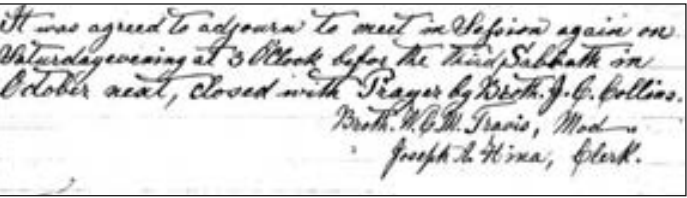 It was agreed to adjourn to meet in Session again on
Saturday evening at 3 O'Clock befor the third Sabbath in
October next, closed with Prayer by Broth. J. C. Collins.
Broth. W. C. M. Travis, Mod
Joseph A.
Clerk.